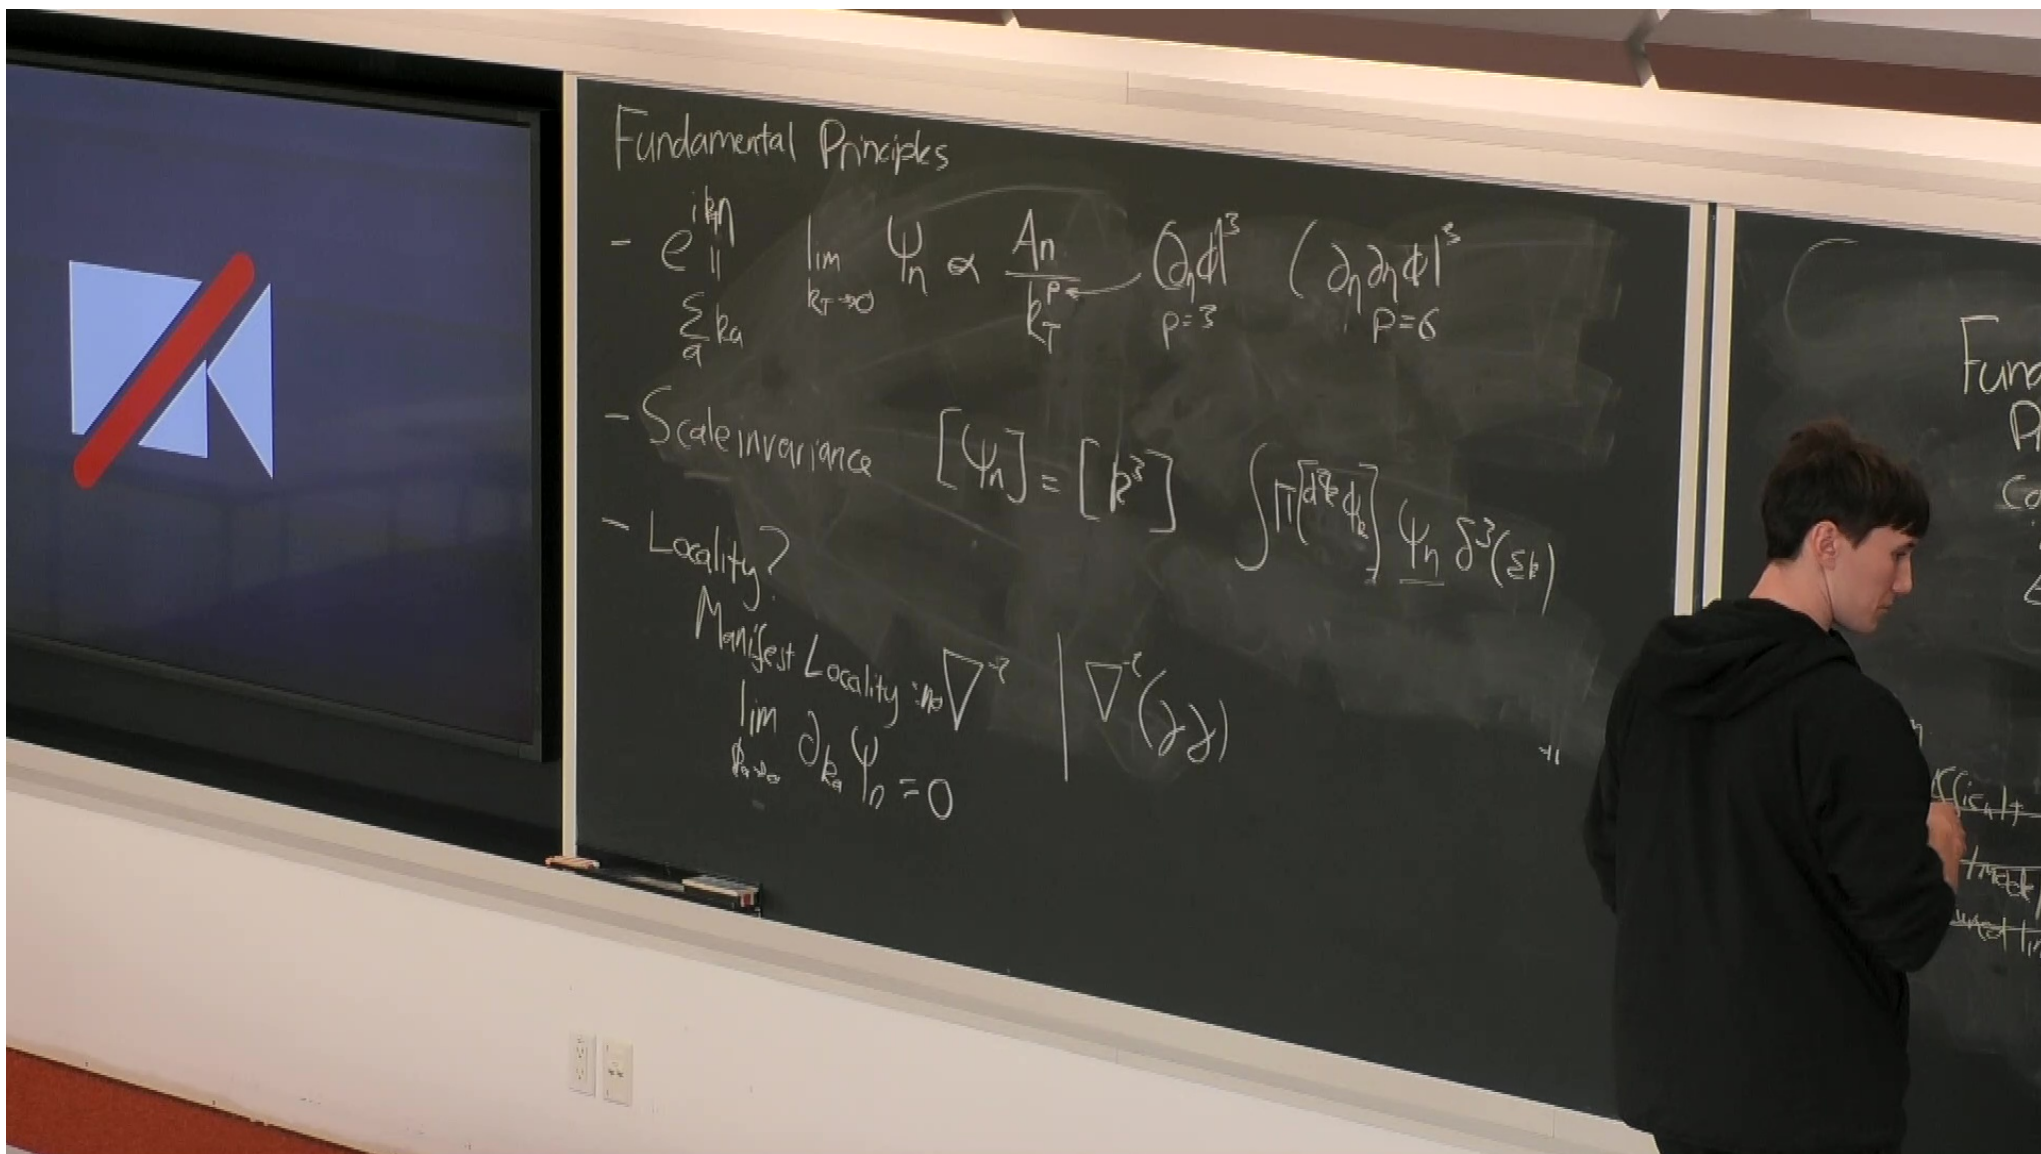 Fundamental Principles
- e^{i k_T η} lim_{k_T→0} Ψ_n ∝ A_n / k_T^p ← (∂_η ϕ)^3 (∂_η ∂_η ϕ)^3
|| p=3 p=6
Σ_a k_a
- Scale invariance [Ψ_n] = [k^3] ∫ Π[d^3k ϕ_k] Ψ_n δ^3(Σk)
- Locality?
Manifest Locality: no ∇^{-2} | ∇^{-2}(∂∂)
lim_{k_a→0} ∂_{k_a} Ψ_n = 0
Fund